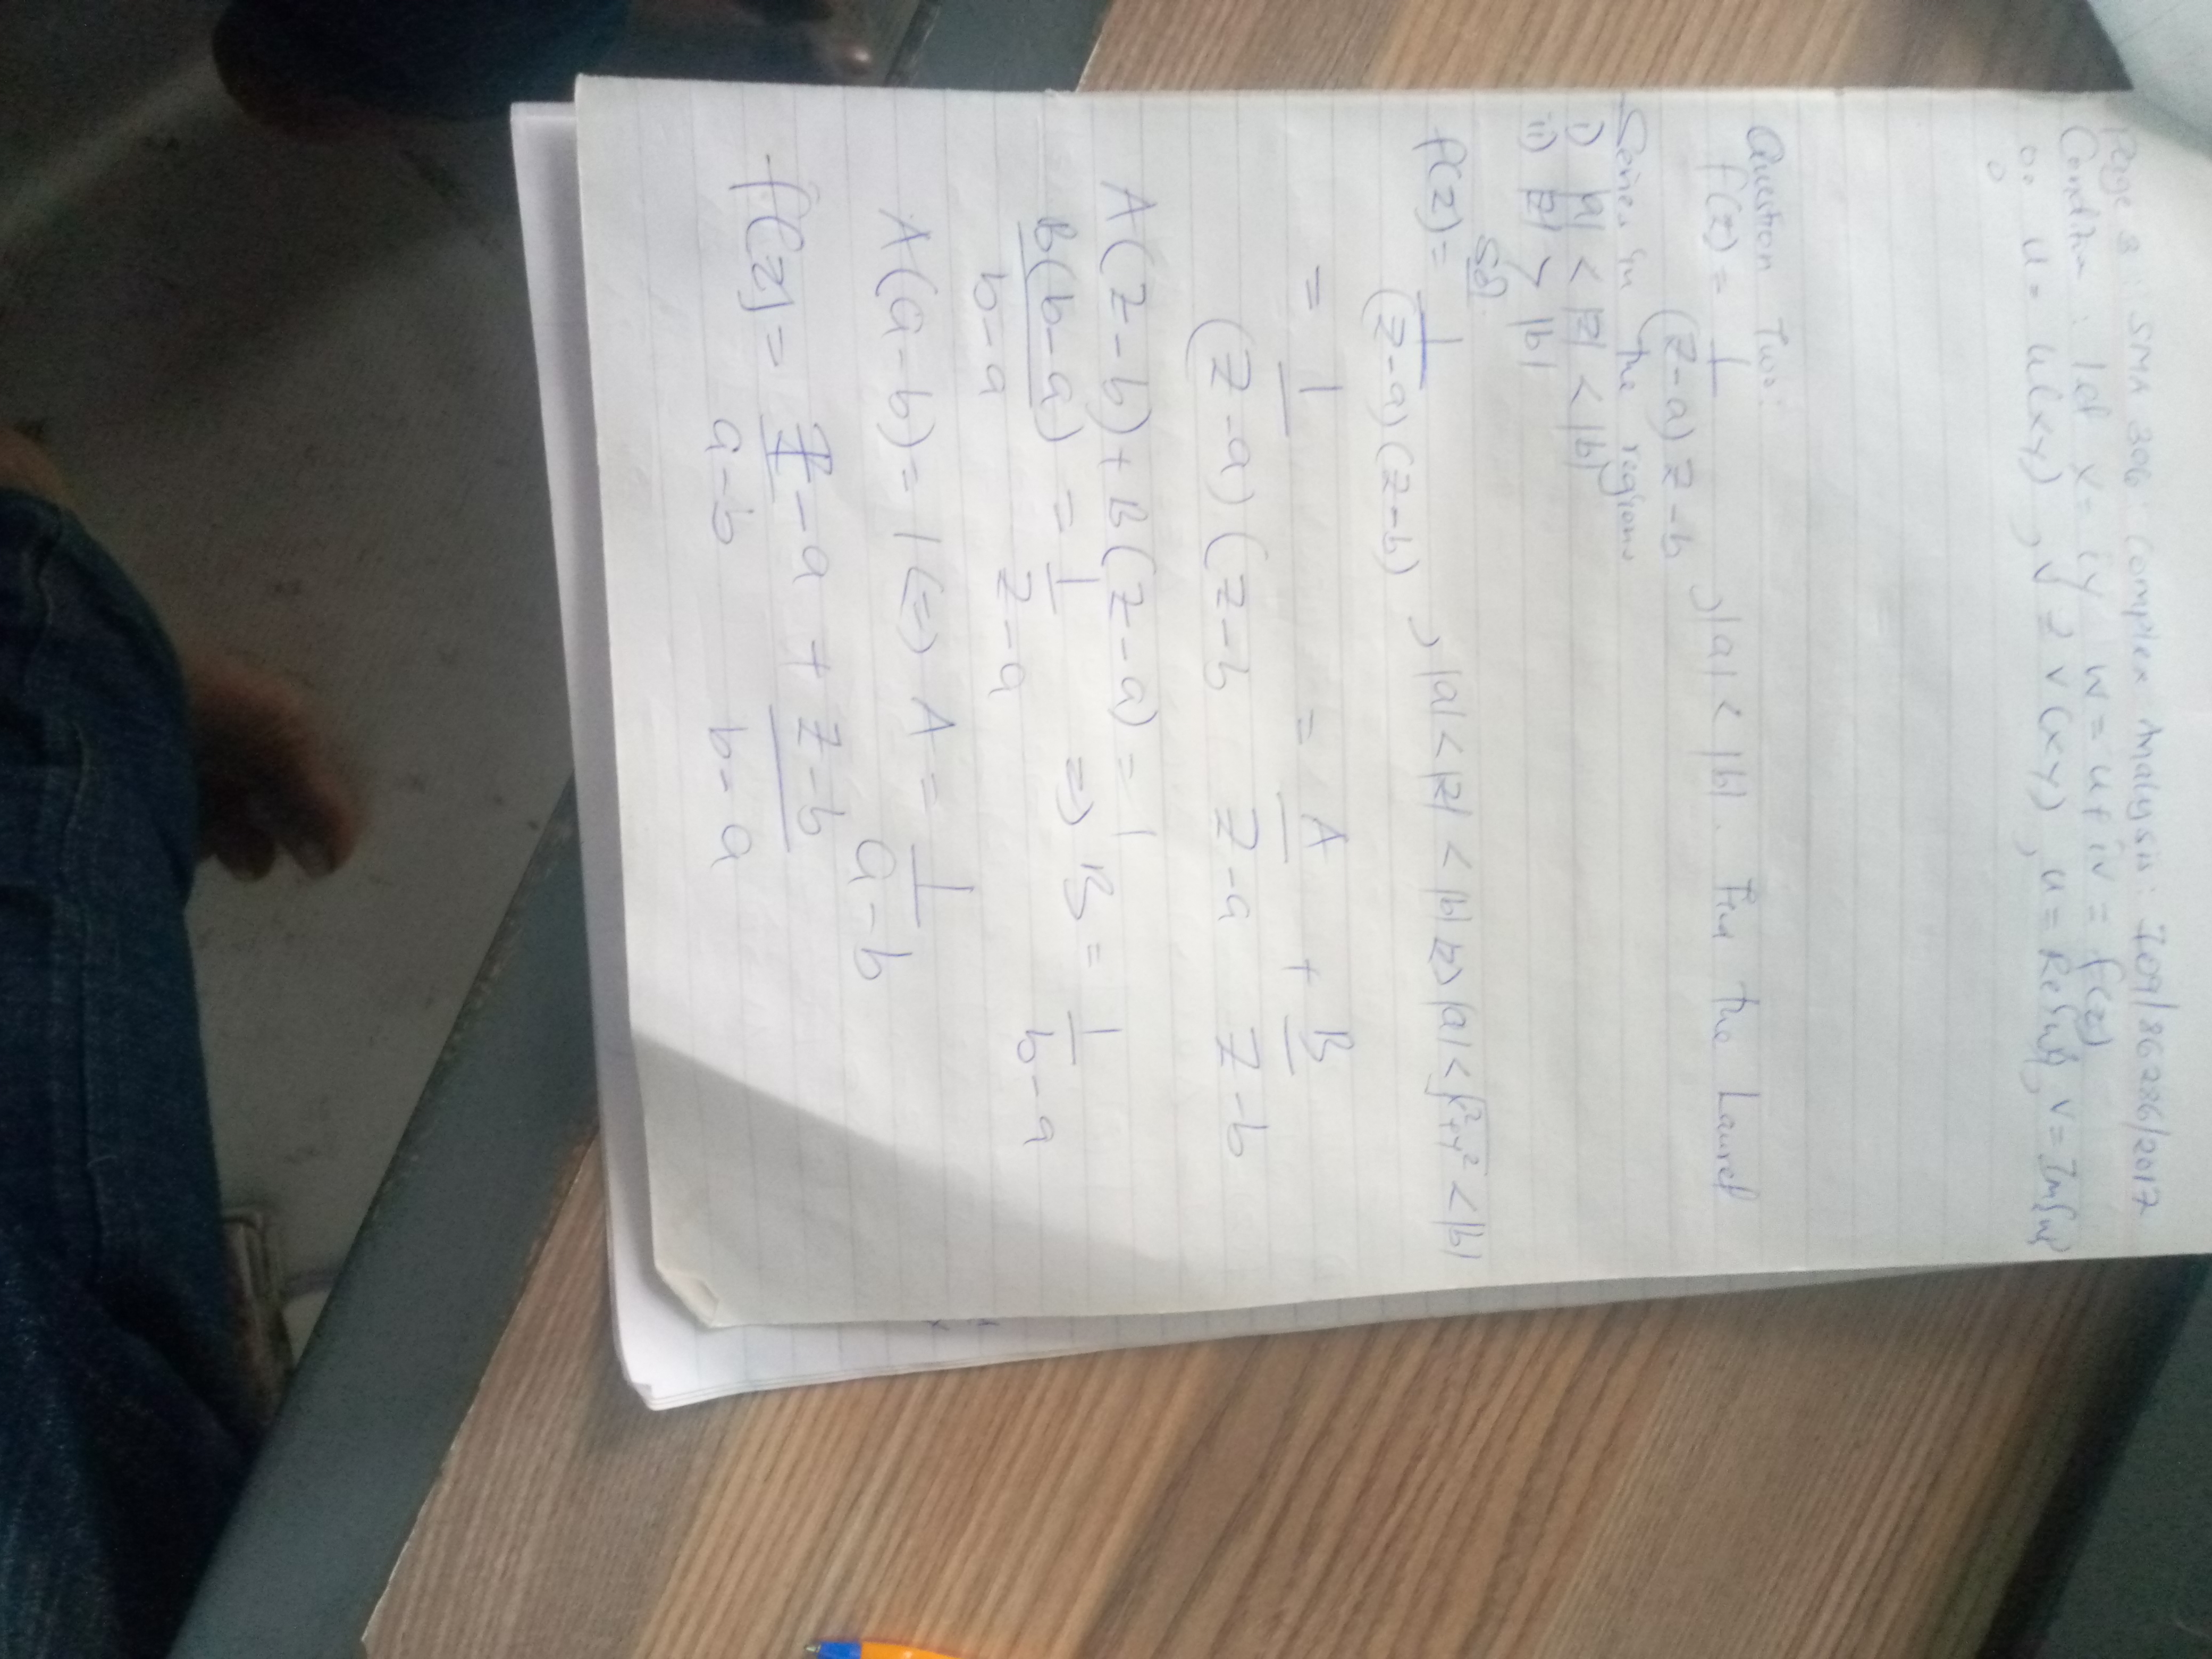 Page 3 SMA 306: Complex Analysis: I09/86286/2017
Condition: let x = iy w = u+iv = f(z)
u = u(xy), v = v(xy), u = Re{w}, v = Im{w}
Question Two:
f(z) = 1/(z-a)z-b , |a| < |b|. Find the Laurel
Series in the regions
i) |a| < |z| < |b|
ii) |z| > |b|
Sol.
f(z) = 1/(z-a)(z-b) , |a| < |z| < |b| |z> |a| < √x²+y² < |b|
= 1/(z-a)(z-b = A/z-a + B/z-b
A(z-b) + B(z-a) = 1
B(b-a)/b-a = 1/z-a ⇒ B = 1/b-a
A(a-b) = 1 ⇔ A = 1/a-b
f(z) = z-a/a-b + z-b/b-a